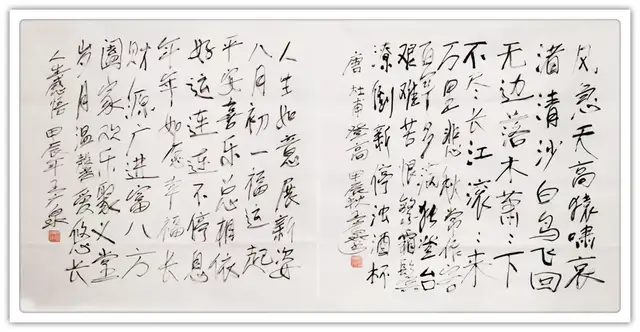 风急天高猿啸哀
渚清沙白鸟飞回
无边落木萧萧下
不尽长江滚滚来
万里悲秋常作客
百年多病独登台
艰难苦恨繁霜鬓
潦倒新停浊酒杯
唐杜甫登高 甲辰秋
人生如意展新姿
八月初一福运起
平安喜乐总相依
好运连连不停息
年年如意幸福长
财源广进富八方
阖家欢乐聚义堂
岁月温馨爱悠长
人生感悟 甲辰年